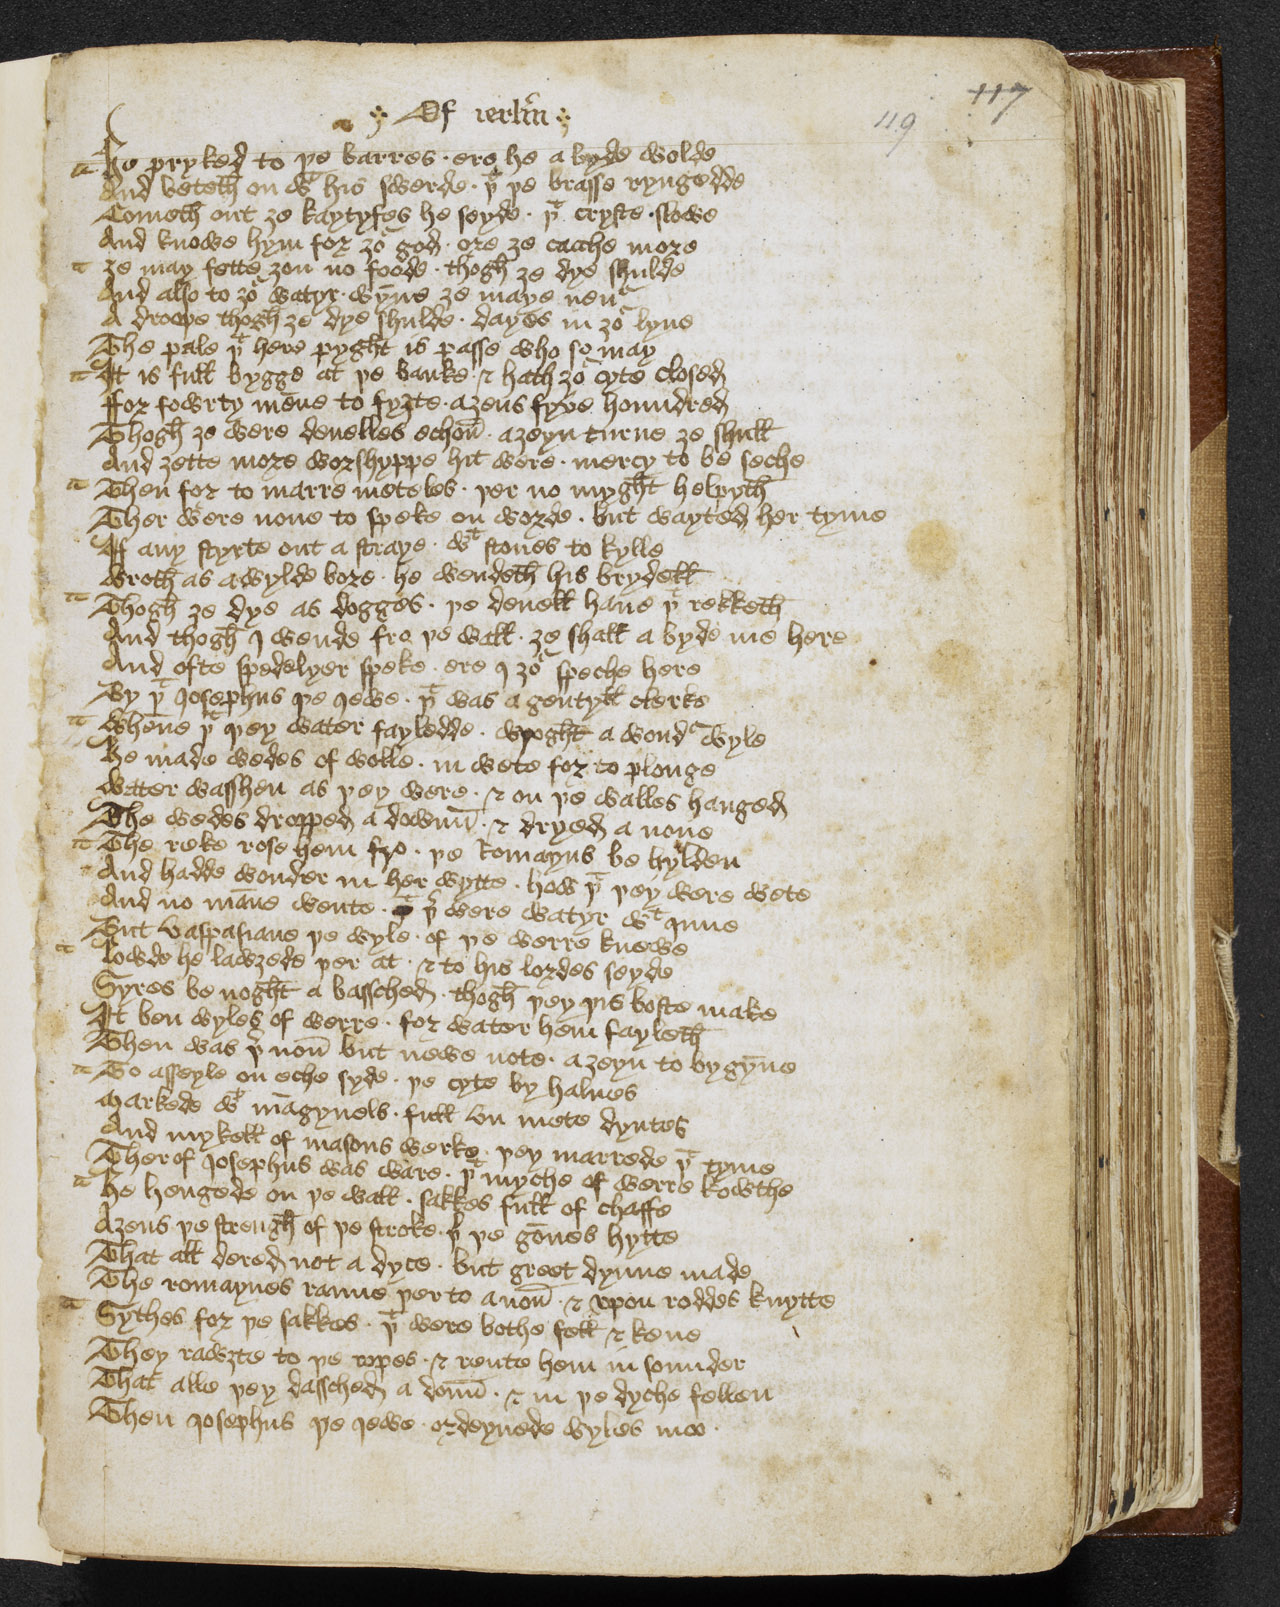 117
119
Of ierlm̄
He pryked to þe barres · ere he a byde wolde
And beteth on wᵗ his swerde · þᵗ þe brasse ryngedde
Cometh out ȝe kaytyfes he seyde · þᵗ cryste slowe
And knowe hym for ȝoʳ god · ore ȝe cacche more
ȝe may fette ȝou no foode · thogh ȝe dye shulde
And also to ȝoʳ watyr · wȳne ȝe maye neuʳ
A droppe thogh ȝe dye shulde · dayes in ȝoʳ lyue
The pale þᵗ here pyght is passe who so may
It is full bygge at þe banke · ⁊ hath ȝoʳ cyte closed
ffor fowrty mēne to fyȝte · aȝens fyve hounndred
Thogh ȝe were deuelles echoñ · aȝeyn turne ȝe shull
And ȝette more worshyppe hit were · mercy to be seche
Then for to marre meteles · þer no myght helpyth
Ther were none to speke on worde · but wayted her tyme
If any styrte out a straye · wᵗ stones to kylle
Wroth as a wylde bore · he wendeth his brydell
Thogh ȝe dye as dogges · þe deuell haue þᵗ rekketh
And thogh I wende fro þe wall · ȝe shall a byde me here
And ofte spedelyer speke · ere I ȝoʳ speche here
By þᵗ Josephus þe Jewe · þᵗ was a gentyll clerke
Whēne þᵗ þey water fayledde · wroght a wondʳ wyle
He made wedes of wolle · in wete for to plonge
Water wasshen as þey were · ⁊ on þe walles hanged
The wedes dropped a downn̄ · ⁊ dryed a none
The reke rose hem fro · þe Romayns be hylden
And hadde wonder in her wytte · how þᵗ þey were wete
And no māne wente · þʳ were watyr wᵗ Inne
But Vaspasiane þe wyle · of þe werre knewe
Lowde he lawȝede þer at · ⁊ to his lordes seyde
Syres be noght a bassched · thogh þey þis boste make
It ben wyles of werre · for water hem fayleth
Then was þʳ noñ but newe note · aȝeyn to bygȳne
To asseyle on eche syde · þe cyte by halues
Markede wᵗ māgynels · full vn mete dyntes
And mykell of masons werke · þey marrede þᵗ tyme
Therof Josephus was ware · þᵗ myche of werre kowthe
He hengede on þe wall · sakkes full of chaffe
Aȝens þe strengh of þe stroke · þʳ þe gōnes hytte
That all dered not a dyce · but greet dynne made
The romaynes ranne þerto anoñ · ⁊ vpon roddes knytte
Sythes for þe sakkes · þᵗ were bothe fell ⁊ kene
They rawȝte to þe ropes · ⁊ rente hem in sounder
That alle þey dassched a doun̄ · ⁊ in þe dyche fellen
Then Josephus þe Jewe · ordeynede wyles moo ·